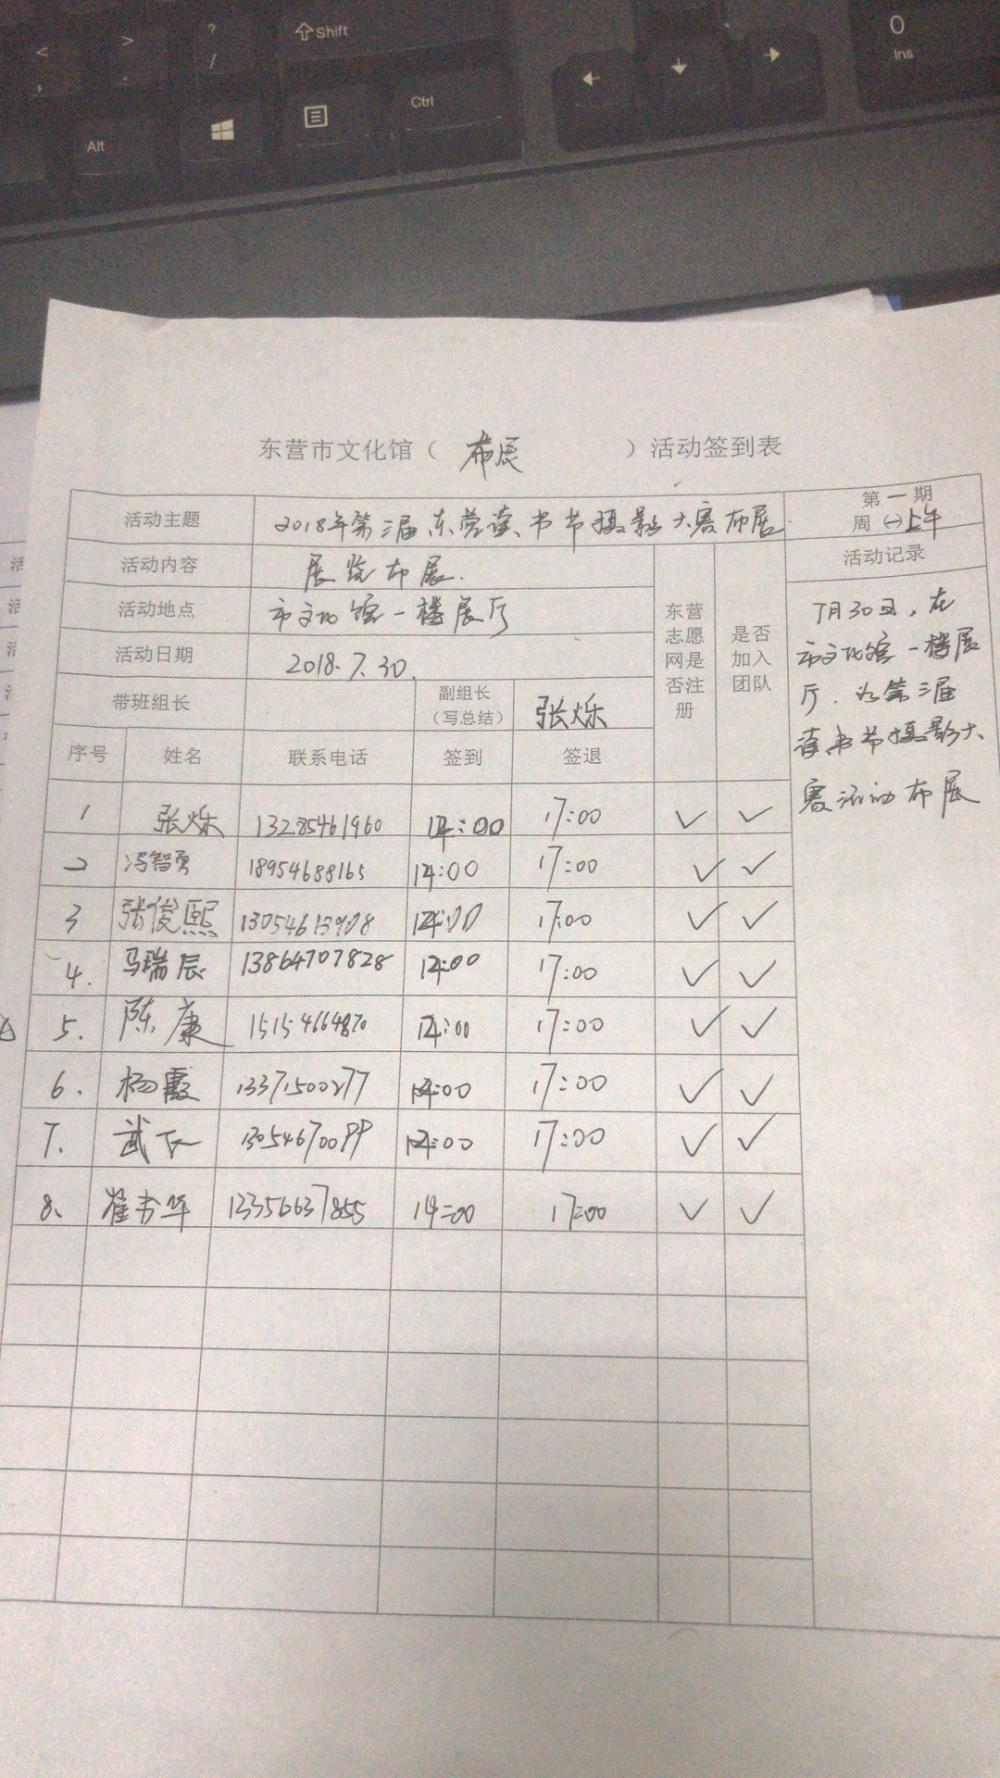 <
,
>
.
?
/
⇧Shift
0
Ins
Alt
Ctrl
东营市文化馆（ 布展 ）活动签到表
活动主题 2018年第三届东营读书节摄影大赛布展 第一期
周㈠上午
活动内容 展览布展. 东营志愿网是否注册 是否加入团队 活动记录
活动地点 市文化馆一楼展厅
活动日期 2018.7.30.
带班组长 副组长（写总结） 张烁
7月30日，在
市文化馆一楼展
厅，为第三届
读书节摄影大
赛活动布展
序号 姓名 联系电话 签到 签退
1 张烁 13285461960 14:00 17:00 ✓ ✓
2 冯智勇 18954688165 14:00 17:00 ✓ ✓
3 张俊熙 14:00 17:00 ✓ ✓
4. 马瑞辰 13864707828 14:00 17:00 ✓ ✓
5. 陈康 15154664870 14:00 17:00 ✓ ✓
6. 杨霞 13371500277 14:00 17:00 ✓ ✓
7. 13054670099 14:00 17:00 ✓ ✓
8. 13356637855 14:00 17:00 ✓ ✓